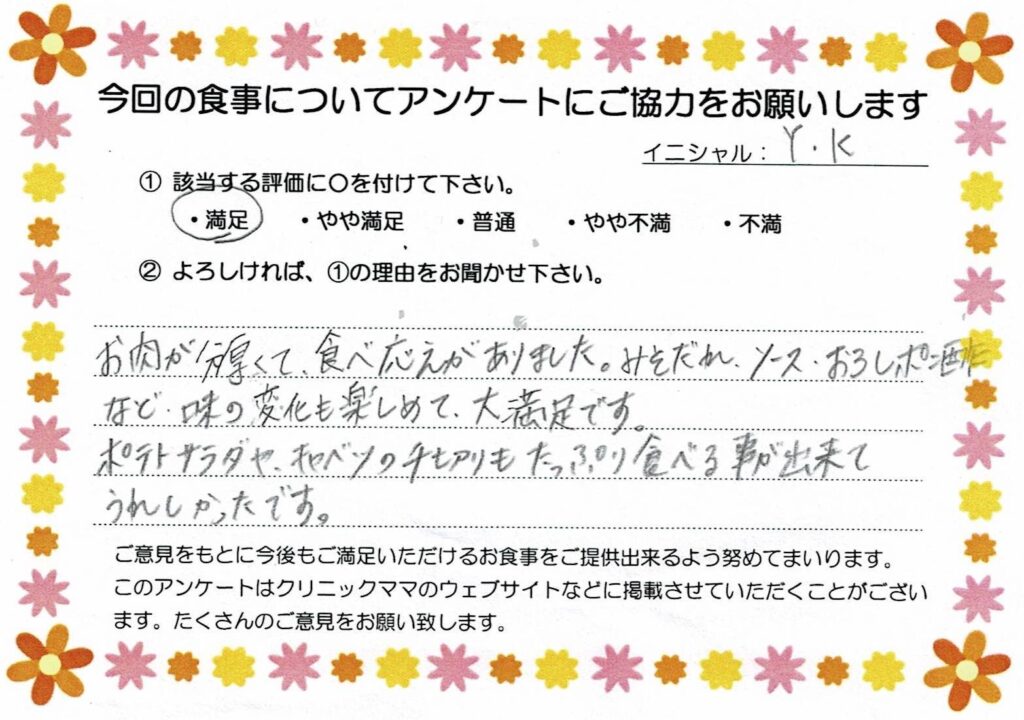 今回の食事についてアンケートにご協力をお願いします
イニシャル： Y.K
① 該当する評価に〇を付けて下さい。
・満足 ・やや満足 ・普通 ・やや不満 ・不満
② よろしければ、①の理由をお聞かせ下さい。
お肉が分厚くて、食べ応えがありました。みそだれ、ソース・おろしポン酢
など、味の変化も楽しめて、大満足です。
ポテトサラダや、キャベツの千切りもたっぷり食べる事が出来て
うれしかったです。
ご意見をもとに今後もご満足いただけるお食事をご提供出来るよう努めてまいります。
このアンケートはクリニックママのウェブサイトなどに掲載させていただくことがござい
ます。たくさんのご意見をお願い致します。